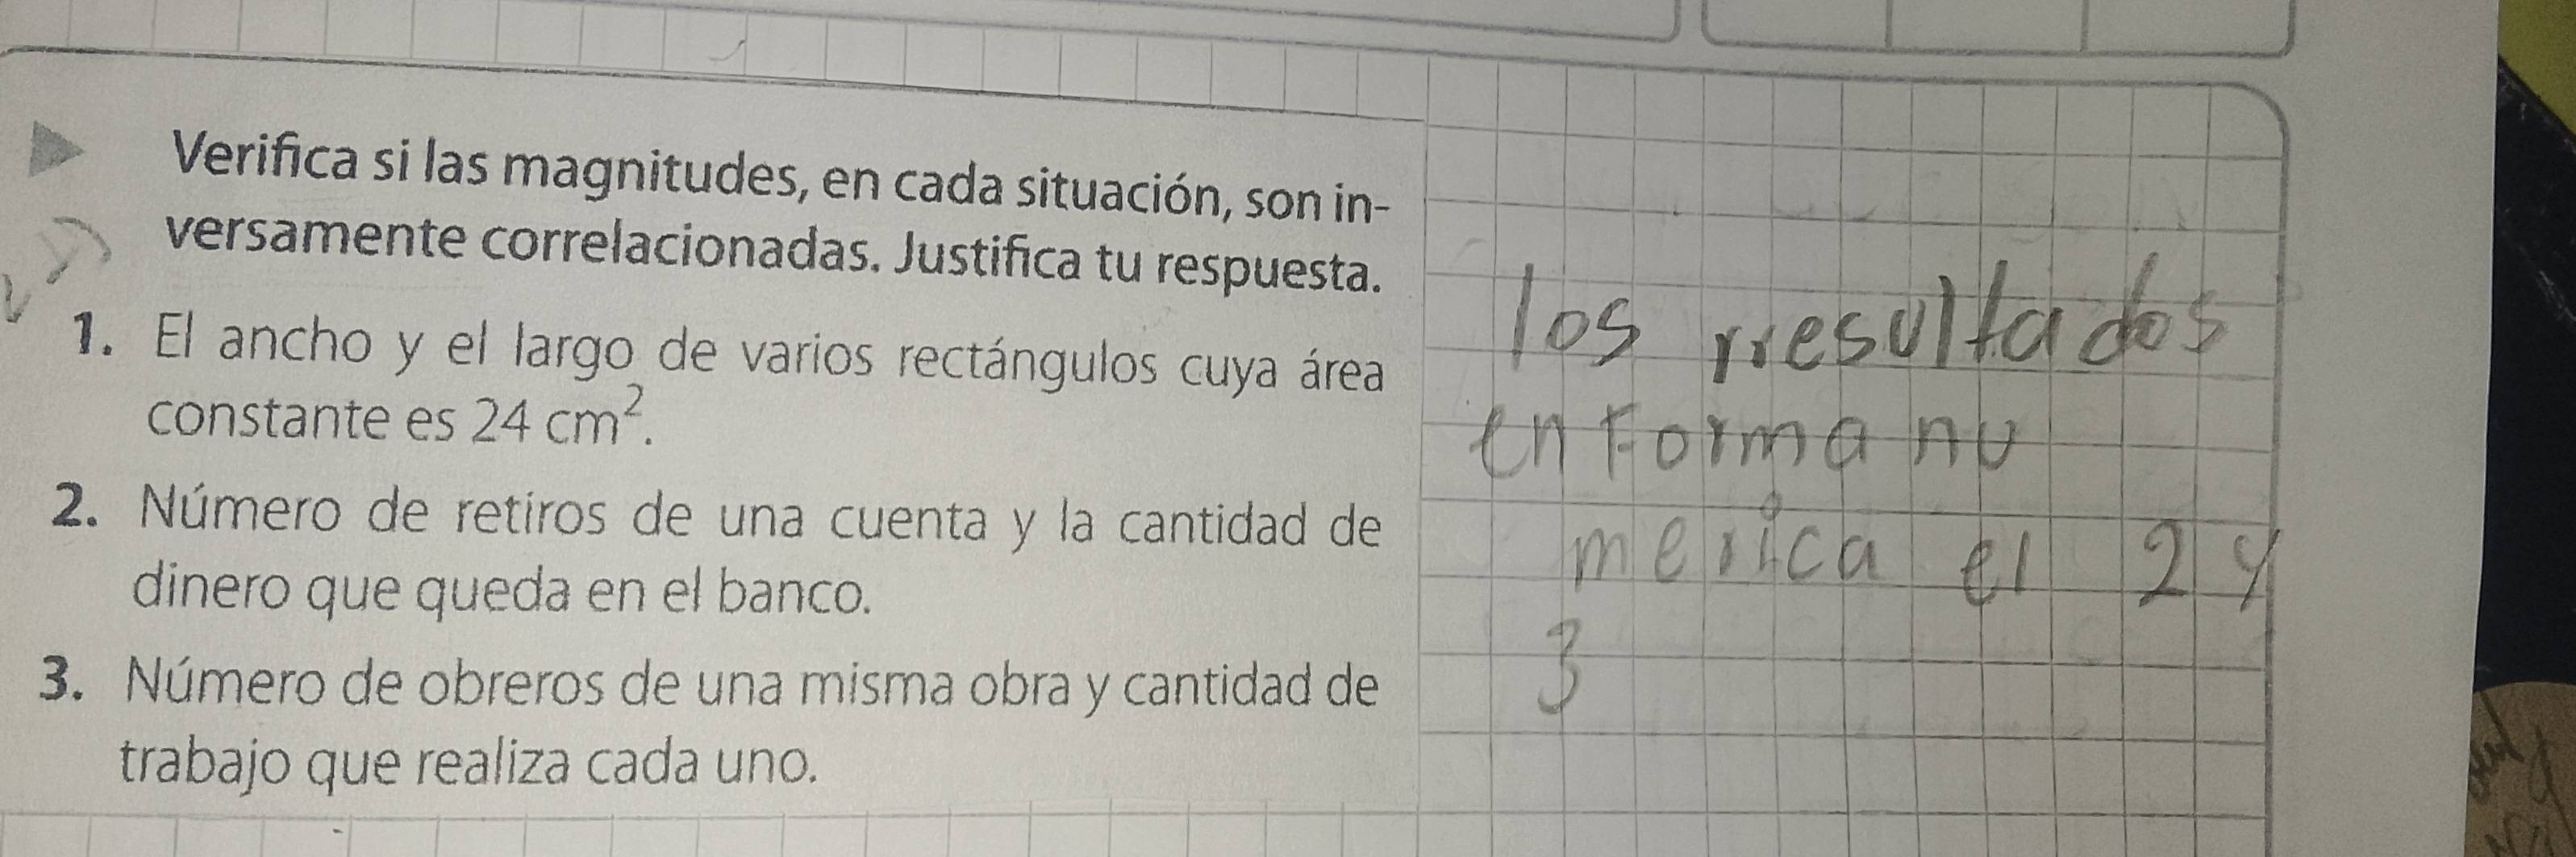 Verifica si las magnitudes, en cada situación, son in-
versamente correlacionadas. Justifica tu respuesta.
1. El ancho y el largo de varios rectángulos cuya área
constante es 24 cm².
2. Número de retiros de una cuenta y la cantidad de
dinero que queda en el banco.
3. Número de obreros de una misma obra y cantidad de
trabajo que realiza cada uno.
los rresultados
en Forma nu
merica el 2 y
3